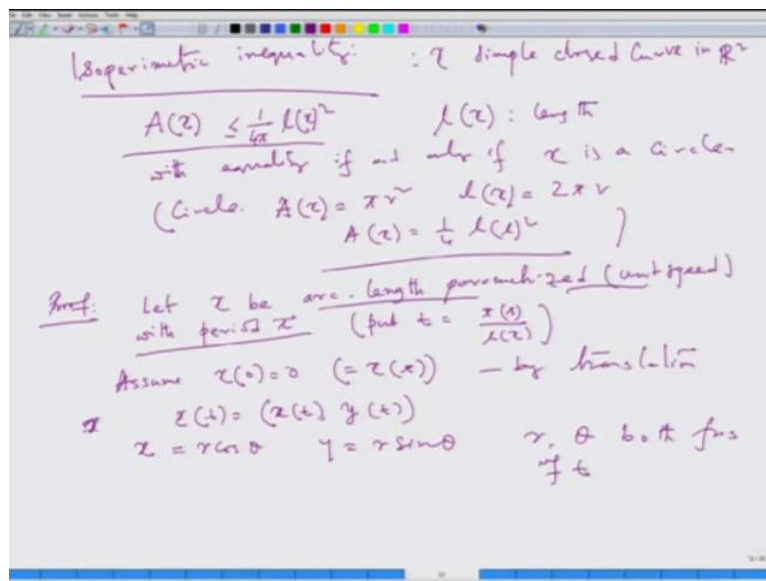 Isoperimetric inequality: : τ simple closed curve in ℝ²
A(τ) ≤ 1/4π l(τ)² l(τ) : length
with equality if and only if τ is a circle
(Circle. A(τ) = πr² l(τ) = 2πr
A(τ) = 1/4 l(l)² )
Proof: Let τ be arc-length parametrized (unit speed)
with period π (put t = π(s)/l(τ))
Assume τ(0)=0 (= τ(π)) — by translation
τ(t) = (x(t) y(t))
x = r cos θ y = r sin θ r, θ both fns
of t